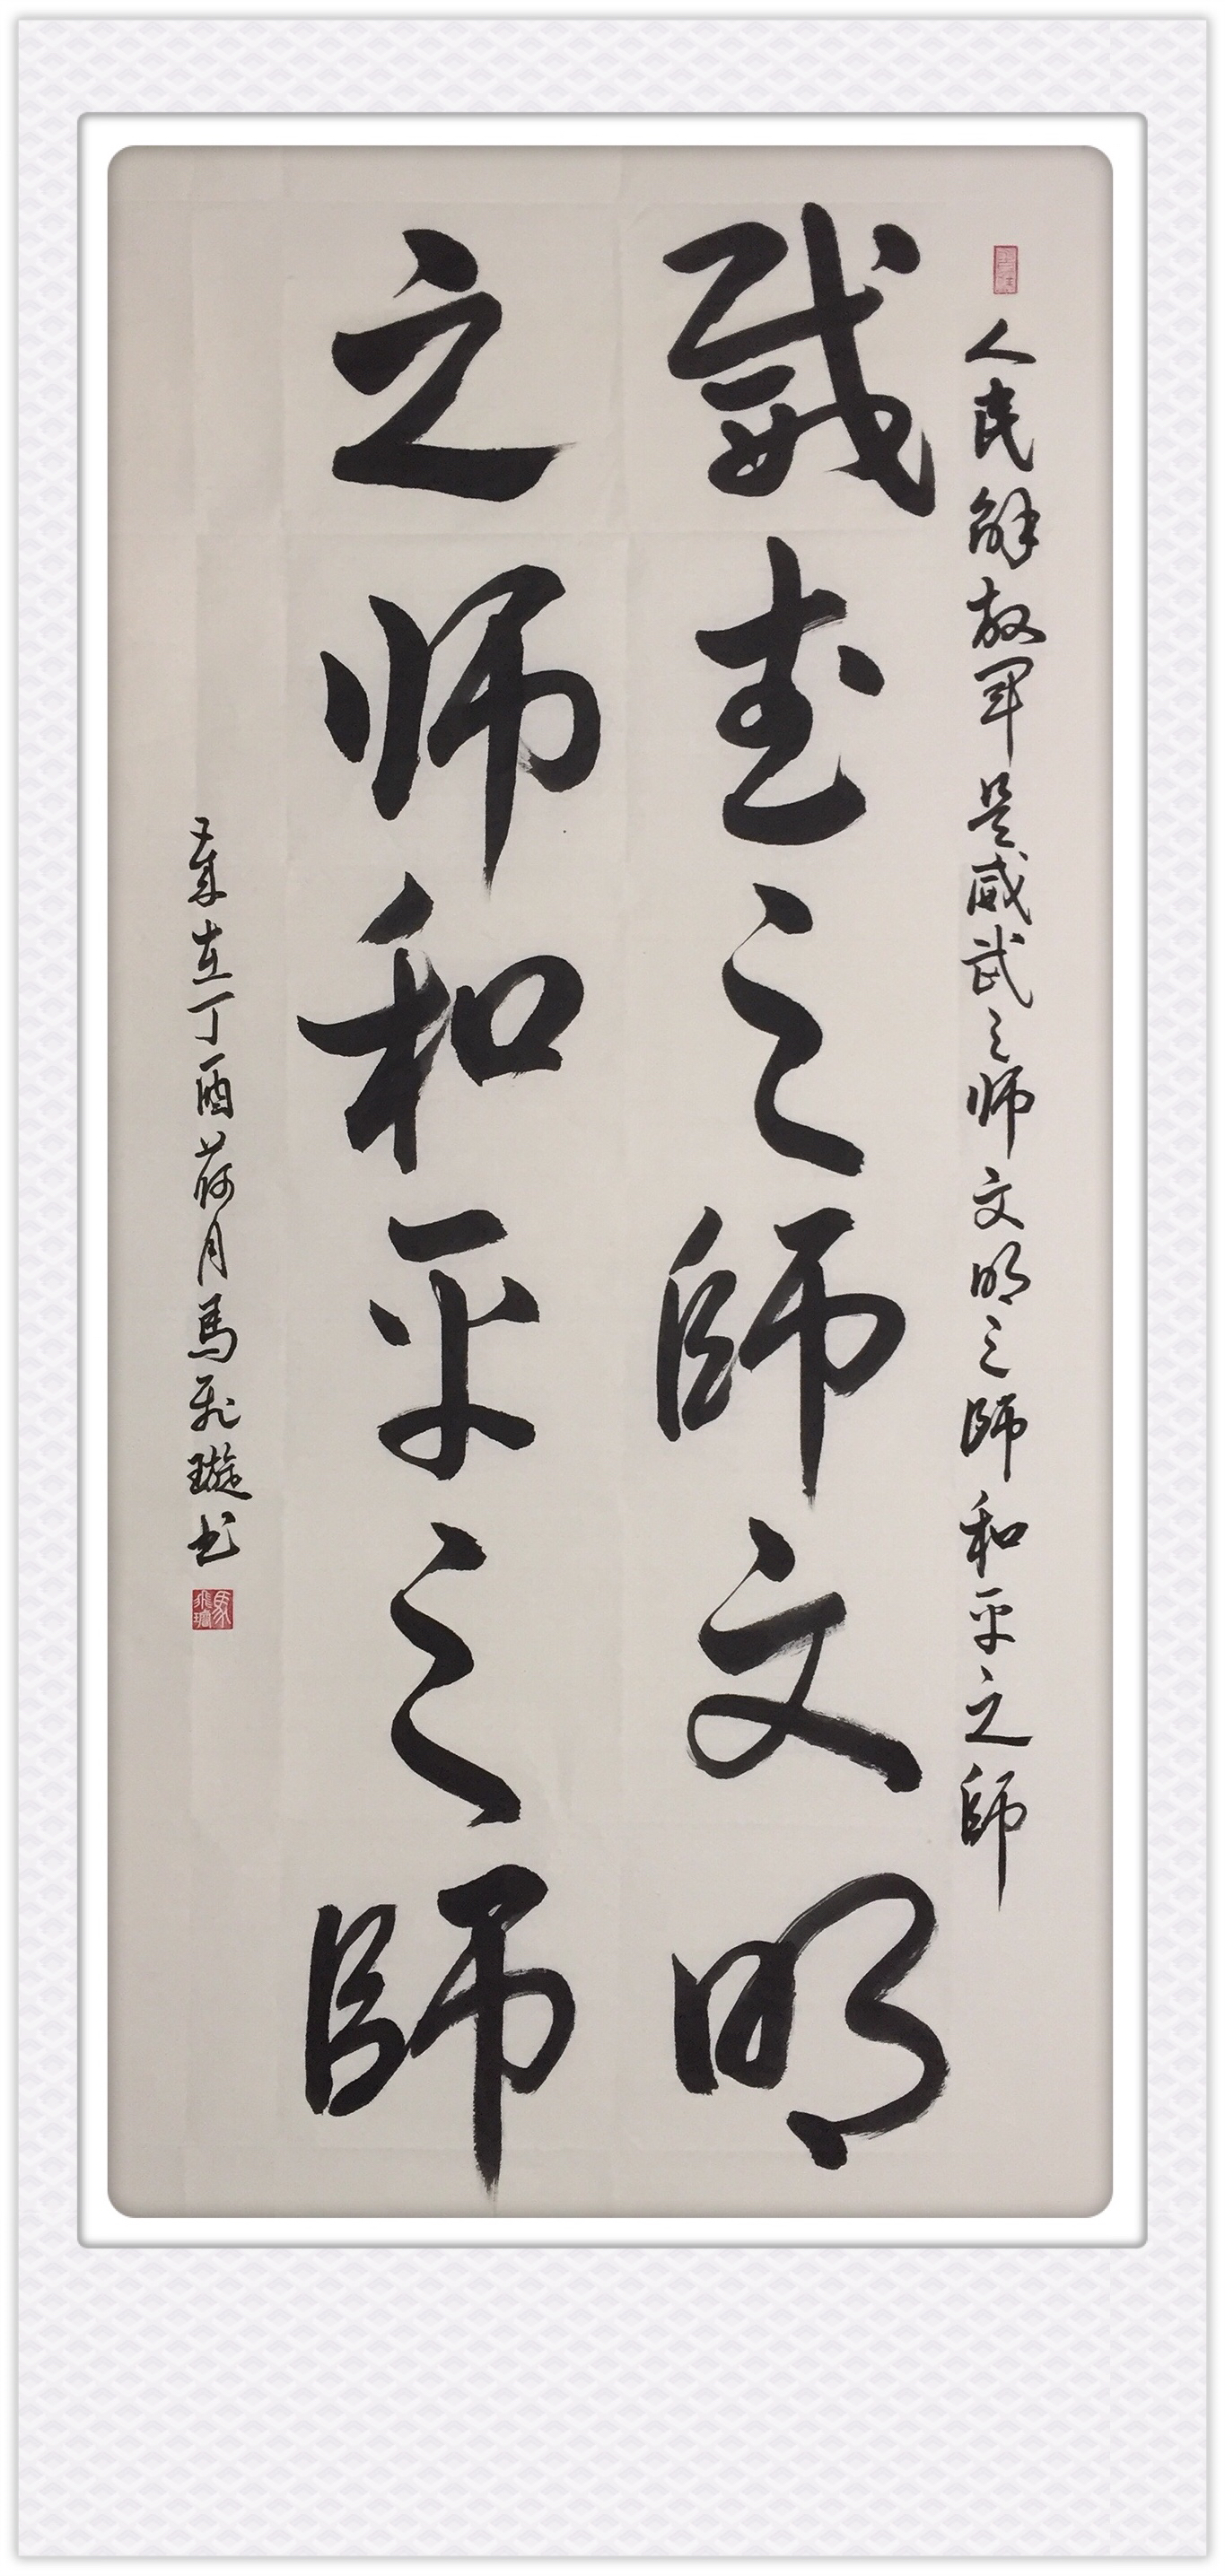 人民解放军是威武之师文明之師和平之師
威武之師文明
之师和平之師
岁在丁酉荷月馬飛璇书